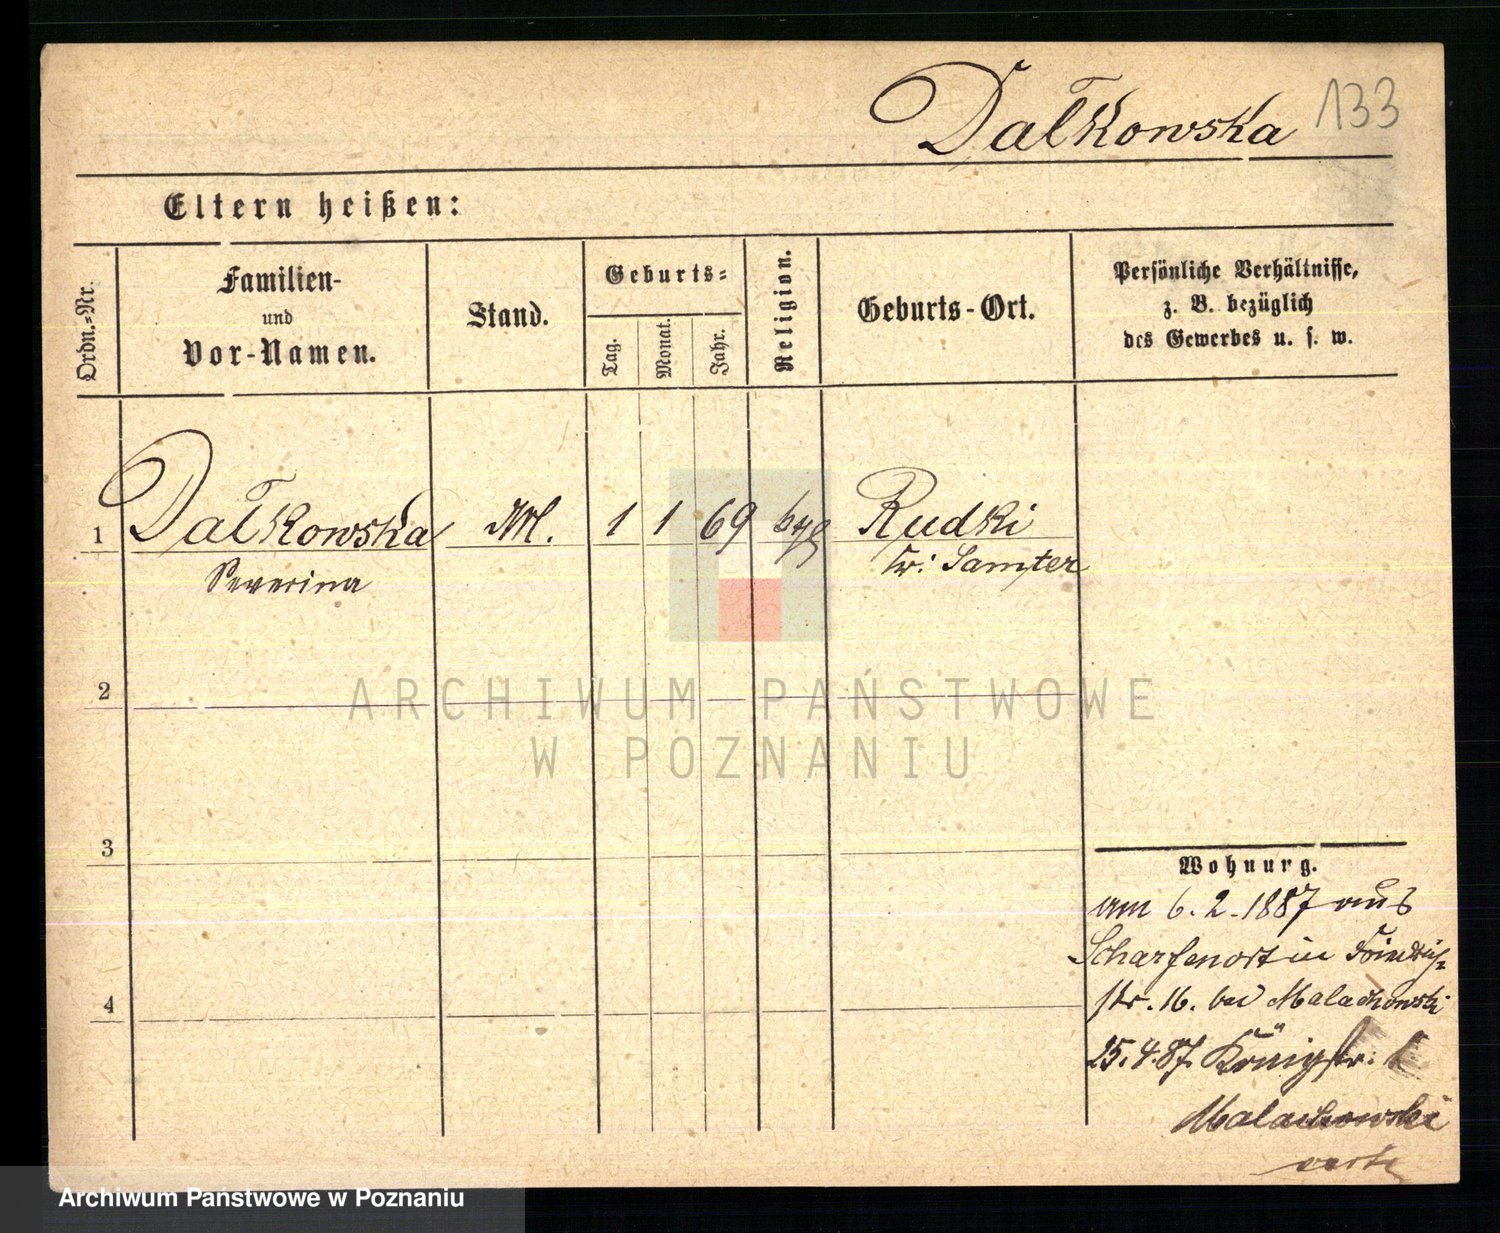 Dałkowska 133
Eltern heißen:
Ordn.-Nr.
Familien-
und
Vor-Namen.
Stand.
Geburts-
Tag.
Monat.
Jahr.
Religion.
Geburts-Ort.
Persönliche Verhältnisse,
z. B. bezüglich
des Gewerbes u. s. w.
1 Dałkowska 1 1 69 Rudki
Severina Kr: Samter
2
ARCHIWUM PAŃSTWOWE
W POZNANIU
3
Wohnung.
am 6.2.1887 aus
Scharfenort in Friedrich-
str. 16. bei Malachowski
4
25.4.87. Königstr:
Malachowski
verte
Archiwum Państwowe w Poznaniu